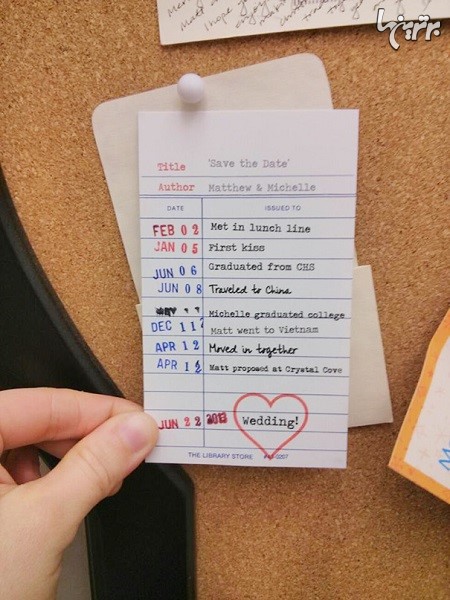 برترینها
Title 'Save the Date'
Author Matthew & Michelle
DATE ISSUED TO
FEB 02 Met in lunch line
JAN 05 First kiss
JUN 06 Graduated from CHS
JUN 08 Traveled to China
Michelle graduated college
DEC 11 Matt went to Vietnam
APR 12 Moved in together
APR 12 Matt proposed at Crystal Cove
JUN 22 2013 Wedding!
THE LIBRARY STORE #43-0207